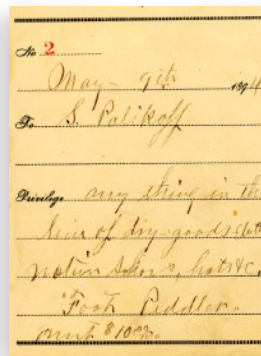 No 2
May - 9th 1894
To S. Palikoff
Privilege any thing in th
line of dry-goods,
notions, hats &c.
Foot Peddler.
$10